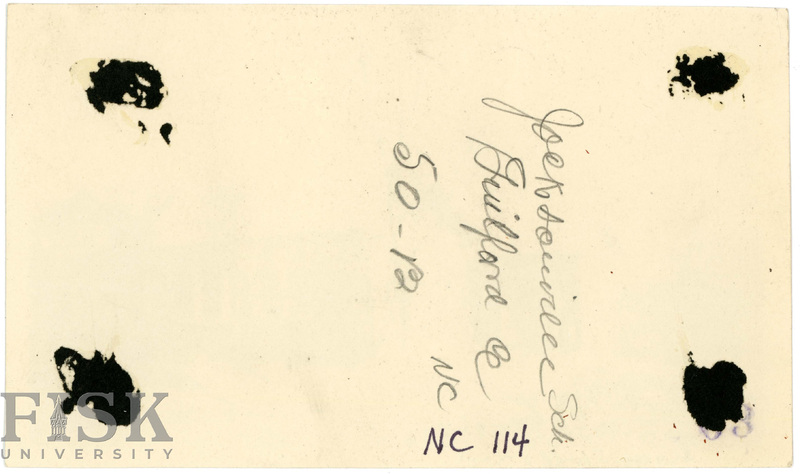 Jacksonville Sch.
Guilford Co
NC
50-B
NC 114
FISK
UNIVERSITY